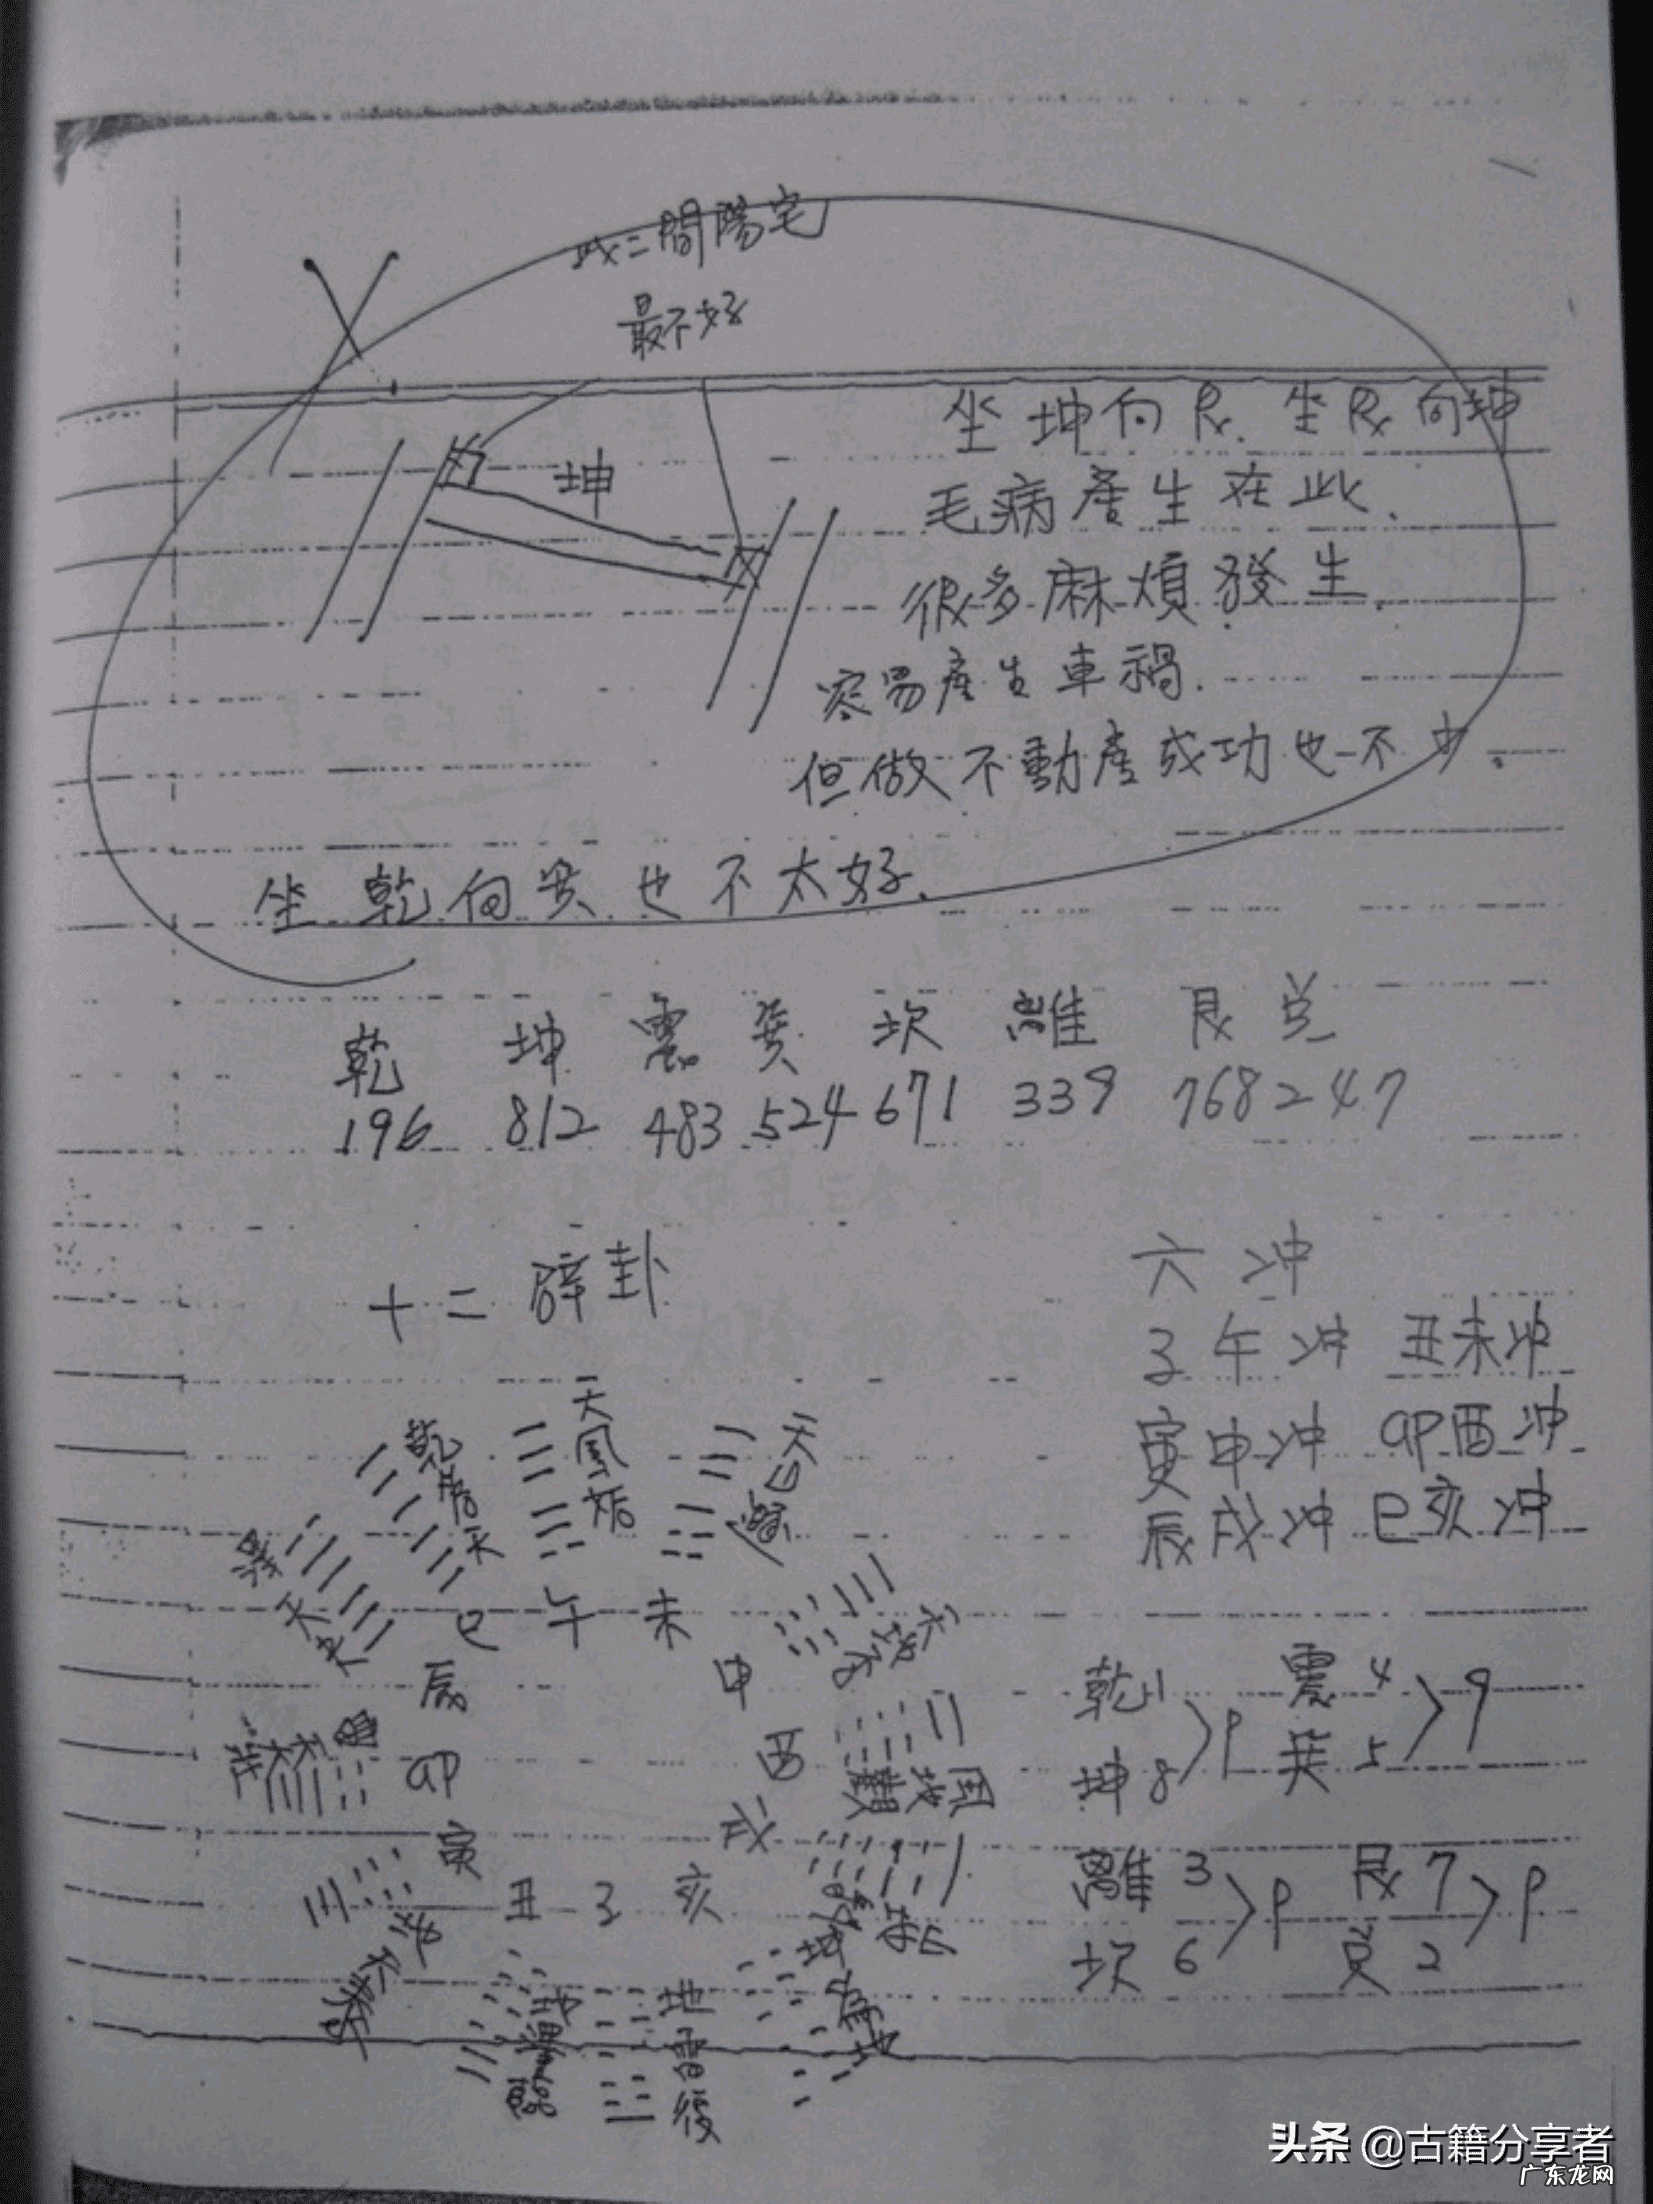 此二間陽宅
最不好
坤
坐坤向艮.坐艮向坤
毛病產生在此.
很多麻煩發生.
容易產生車禍.
但做不動產成功也不少.
坐乾向巽也不太好.
乾 坤 震 巽 坎 離 艮 兌
196 812 483 524 671 339 768 247
十二辟卦
六冲
子午冲 丑未冲
寅申冲 卯酉冲
辰戌冲 巳亥冲
乾為天
天風姤
天山遯
澤天夬
巳 午 未
辰
申
卯
酉
寅
戌
丑 子 亥
天地否
風地觀
坤為地
地雷復
乾1 坤8 > 9
震4 巽5 > 9
離3 坎6 > 9
艮7 兌2 > 9
头条 @古籍分享者
广东龙网